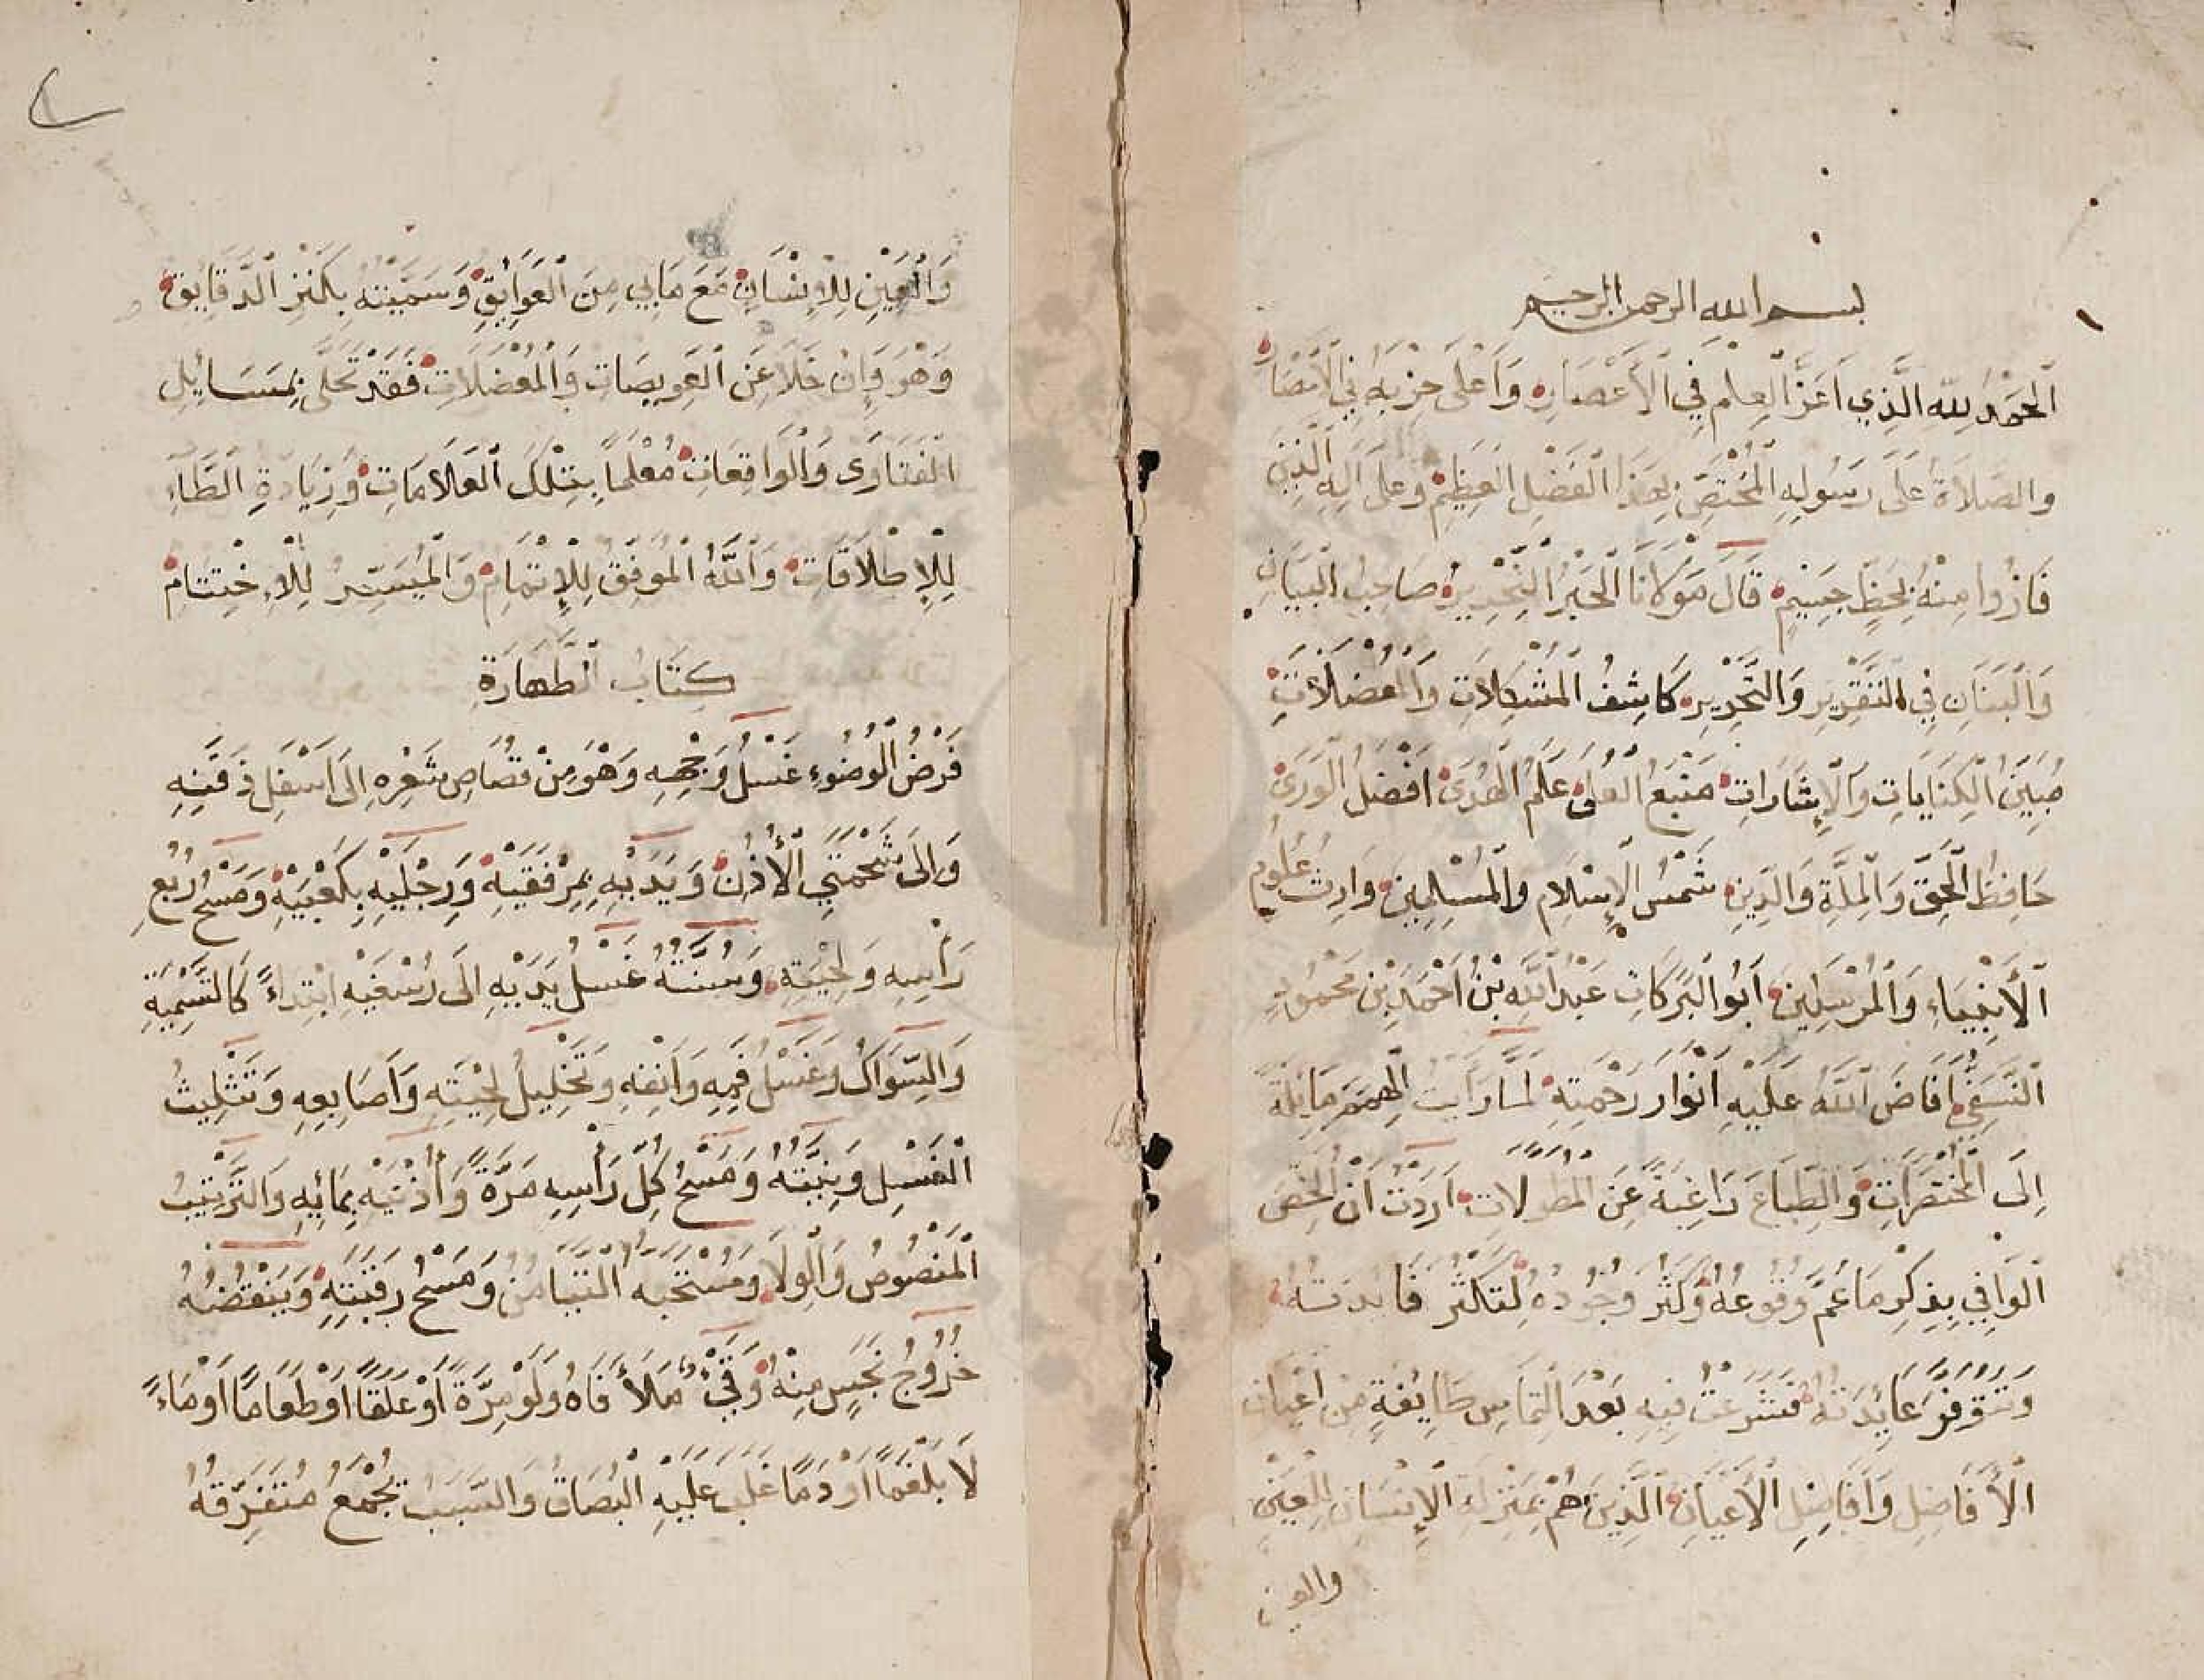 ١
بسم الله الرحمن الرحيم
اَلْحَمْدُ لِلّٰهِ الَّذِي اَعَزَّ الْعِلْمَ فِي الْاَعْصَارِ وَاَعْلَى حِزْبَهُ فِي الْاَمْصَارِ
والصَلَاةُ عَلَى رَسُولِهِ الْمُخْتَصِّ بِهَذَا الْفَضْلِ الْعَظِيْمِ وعلى آلِهِ الَّذِيْنَ
فَازُوا مِنْهُ بِحَظٍّ جَسِيْمٍ قَالَ مَوْلَانَا الْحَبْرُ النِّحْرِيْرُ صَاحِبُ الْبَيَانِ
وَالْبَنَانِ فِي التَّقْرِيْرِ وَالتَّحْرِيْرِ كَاشِفُ الْمُشْكِلَاتِ وَالْمُعْضَلَاتِ
مُبَيِّنُ الْكِنَايَاتِ وَالْاِشَارَاتِ مَنْبَعُ الْعُلَى عَلَمُ الْهُدَى اَفْضَلُ الْوَرَى
حَافِظُ الْحَقِّ وَالْمِلَّةِ وَالدِّيْنِ شَمْسُ الْاِسْلَامِ والْمُسْلِمِيْنَ وَارِثُ عُلُومِ
الْأَنْبِيَاءِ وَالْمُرْسَلِيْنَ اَبُو الْبَرَكَاتِ عَبْدُ اللّٰهِ بْنُ اَحْمَدَ بْنِ مَحْمُودٍ
النَّسَفِيُّ اَفَاضَ اللّٰهُ عَلَيْهِ اَنْوَارَ رَحْمَتِهِ لَمَّا رَاَيْتُ الْهِمَمَ مَايِلَةً
اِلَى الْمُخْتَصَرَاتِ وَالطِّبَاعَ رَاغِبَةً عَنِ المطولات اَرَدْتُ اَنْ اُلَخِّصَ
الْوَافِي بِذِكْرِ مَا عَمَّ وُقُوعُهُ وَكَثُرَ وُجُودُهُ لِتَكْثُرَ فَايِدَتُهُ
وَتَتَوَفَّرَ عَايِدَتُهُ فَشَرَعْتُ فِيْهِ بَعْدَ الْتِمَاسِ طَايِفَةٍ مِنْ اَعْيَانِ
الْأَفَاضِلِ وَاَفَاضِلِ الْأَعْيَانِ الَّذِيْنَ هُمْ بِمَنْزِلَةِ الْاِنْسَانِ لِلْعَيْنِ
والعين
وَالْعَيْنِ لِلْاِنْسَانِ مَعَ مَا بِي مِنَ الْعَوَايِقِ وَسَمَّيْتُهُ بِكَنْزِ الدَّقَايِقِ
وَهُوَ وَاِنْ خَلَا عَنِ الْعَوِيصَاتِ وَالْمُعْضَلَاتِ فَقَدْ تَحَلَّى بِمَسَايِلِ
الْفَتَاوَى وَالْوَاقِعَاتِ مُعْلَمًا بِتِلْكَ الْعَلَامَاتِ وَزِيَادَةِ الطَّاءِ
لِلْاِطْلَاقَاتِ وَاللّٰهُ الْمُوَفِّقُ لِلْاِتْمَامِ وَالْمُيَسِّرُ لِلْاِخْتِتَامِ
كِتَابُ الطَّهَارَةِ
فَرْضُ الْوُضُوءِ غَسْلُ وَجْهِهِ وَهُوَ مِنْ قُصَاصِ شَعْرِهِ اِلَى اَسْفَلِ ذَقَنِهِ
وَاِلَى شَحْمَتَيِ الْأُذُنِ وَيَدَيْهِ بِمِرْفَقَيْهِ وَرِجْلَيْهِ بِكَعْبَيْهِ وَمَسْحُ رُبْعِ
رَأْسِهِ وَلِحْيَتِهِ وَسُنَّتُهُ غَسْلُ يَدَيْهِ اِلَى رُسْغَيْهِ ابْتِدَاءً كَالتَّسْمِيَةِ
وَالسِّوَاكُ وَغَسْلُ فَمِهِ وَاَنْفِهِ وَتَخْلِيلُ لِحْيَتِهِ وَاَصَابِعِهِ وَتَثْلِيثُ
الْغَسْلِ وَنِيَّتُهُ وَمَسْحُ كُلِّ رَأْسِهِ مَرَّةً وَاُذُنَيْهِ بِمَائِهِ وَالتَّرْتِيبُ
الْمَنْصُوصُ وَالْوِلَا وَمُسْتَحَبُّهُ التَّيَامُنُ وَمَسْحُ رَقَبَتِهِ وَيَنْقُضُهُ
خُرُوجُ نَجِسٍ مِنْهُ وَقَيْءٌ مَلَأَ فَاهُ وَلَوْ مِرَّةً اَوْ عَلَقًا اَوْ طَعَامًا اَوْ مَاءً
لَا بَلْغَمًا اَوْ دَمًا غَلَبَ عَلَيْهِ الْبُصَاقُ وَالسَّبَبُ يَجْمَعُ مُتَفَرِّقَهُ